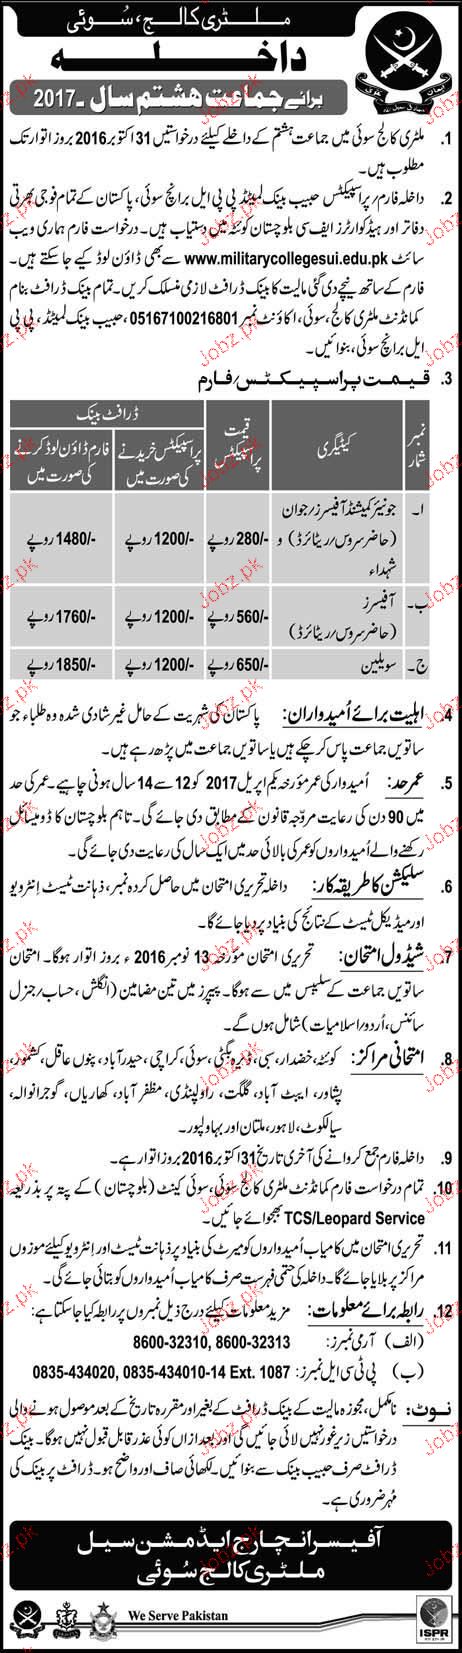 ملٹری کالج، سُوئی
داخلہ
برائے جماعت ہشتم سال۔2017
1. ملٹری کالج سوئی میں جماعت ہشتم کے داخلے کیلئے درخواستیں 31 اکتوبر 2016 بروز اتوار تک
مطلوب ہیں۔
2. داخلہ فارم/پراسپیکٹس حبیب بینک لمیٹڈ پی پی ایل برانچ سوئی، پاکستان کے تمام فوجی بھرتی
دفاتر اور ہیڈکوارٹرز ایف سی بلوچستان کوئٹہ میں دستیاب ہیں۔ درخواست فارم ہماری ویب
سائٹ www.militarycollegesui.edu.pk سے بھی ڈاؤن لوڈ کیے جاسکتے ہیں۔
فارم کے ساتھ نیچے دی گئی مالیت کا بینک ڈرافٹ لازمی منسلک کریں۔ تمام بینک ڈرافٹ بنام
کمانڈنٹ ملٹری کالج، سوئی، اکاؤنٹ نمبر 05167100216801، حبیب بینک لمیٹڈ، پی پی
ایل برانچ سوئی، بنوائیں۔
3. قیمت پراسپیکٹس/فارم
نمبر شمار | کیٹیگری | قیمت پراسپیکٹس | ڈرافٹ بینک
پراسپیکٹس خریدنے کی صورت میں | فارم ڈاؤن لوڈ کرنے کی صورت میں
ا۔ | جونیئر کمیشنڈ آفیسرز/جوان (حاضر سروس/ریٹائرڈ) و شہداء | 280/- روپے | 1200/- روپے | 1480/- روپے
ب۔ | آفیسرز (حاضر سروس/ریٹائرڈ) | 560/- روپے | 1200/- روپے | 1760/- روپے
ج۔ | سویلین | 650/- روپے | 1200/- روپے | 1850/- روپے
4. اہلیت برائے اُمیدواران: پاکستان کی شہریت کے حامل غیر شادی شدہ وہ طلباء جو
ساتویں جماعت پاس کرچکے ہیں یا ساتویں جماعت میں پڑھ رہے ہیں۔
5. عمر حد: اُمیدوار کی عمر مؤرخہ یکم اپریل 2017 کو 12 سے 14 سال ہونی چاہیے۔ عمر کی حد
میں 90 دن کی رعایت مروّجہ قانون کے مطابق دی جائے گی۔ تاہم بلوچستان کا ڈومیسائل
رکھنے والے اُمیدواروں کو عمر کی بالائی حد میں ایک سال کی رعایت دی جائے گی۔
6. سلیکشن کا طریقہ کار: داخلہ تحریری امتحان میں حاصل کردہ نمبر، ذہانت ٹیسٹ، انٹرویو
اور میڈیکل ٹیسٹ کے نتائج کی بنیاد پر دیا جائے گا۔
7. شیڈول امتحان: تحریری امتحان مؤرخہ 13 نومبر 2016ء بروز اتوار ہوگا۔ امتحان
ساتویں جماعت کے سلیبس میں سے ہوگا۔ پیپرز میں تین مضامین (انگلش، حساب/جنرل
سائنس، اُردو/اسلامیات) شامل ہوں گے۔
8. امتحانی مراکز: کوئٹہ، خضدار، سبی، ڈیرہ بگٹی، سوئی، کراچی، حیدرآباد، پنوں عاقل، کشمور،
پشاور، ایبٹ آباد، گلگت، راولپنڈی، مظفر آباد، کھاریاں، گوجرانوالہ،
سیالکوٹ، لاہور، ملتان اور بہاولپور۔
9. داخلہ فارم جمع کروانے کی آخری تاریخ 31 اکتوبر 2016 بروز اتوار ہے۔
10. تمام درخواست فارم کمانڈنٹ ملٹری کالج سوئی، سوئی کینٹ (بلوچستان) کے پتہ پر بذریعہ
TCS/Leopard Service بھجوائے جائیں۔
11. تحریری امتحان میں کامیاب اُمیدواروں کو میرٹ کی بنیاد پر ذہانت ٹیسٹ اور انٹرویو کیلئے موزوں
مراکز پر بلایا جائے گا۔ داخلہ کی حتمی فہرست صرف کامیاب اُمیدواروں کو بتائی جائے گی۔
12. رابطہ برائے معلومات: مزید معلومات کیلئے درج ذیل نمبروں پر رابطہ کیا جاسکتا ہے:
(الف) آرمی نمبرز: 8600-32310, 8600-32313
(ب) پی ٹی سی ایل نمبرز: 0835-434020, 0835-434010-14 Ext. 1087
نوٹ: نامکمل، مجوزہ مالیت کے بینک ڈرافٹ کے بغیر اور مقررہ تاریخ کے بعد موصول ہونے والی
درخواستیں زیر غور نہیں لائی جائیں گی اور بعد ازاں کوئی عذر قابل قبول نہیں ہوگا۔ بینک
ڈرافٹ صرف حبیب بینک سے بنوائیں۔ لکھائی صاف اور واضح ہو۔ ڈرافٹ پر بینک کی
مُہر ضروری ہے۔
آفیسر انچارج ایڈمشن سیل
ملٹری کالج سُوئی
We Serve Pakistan
ISPR